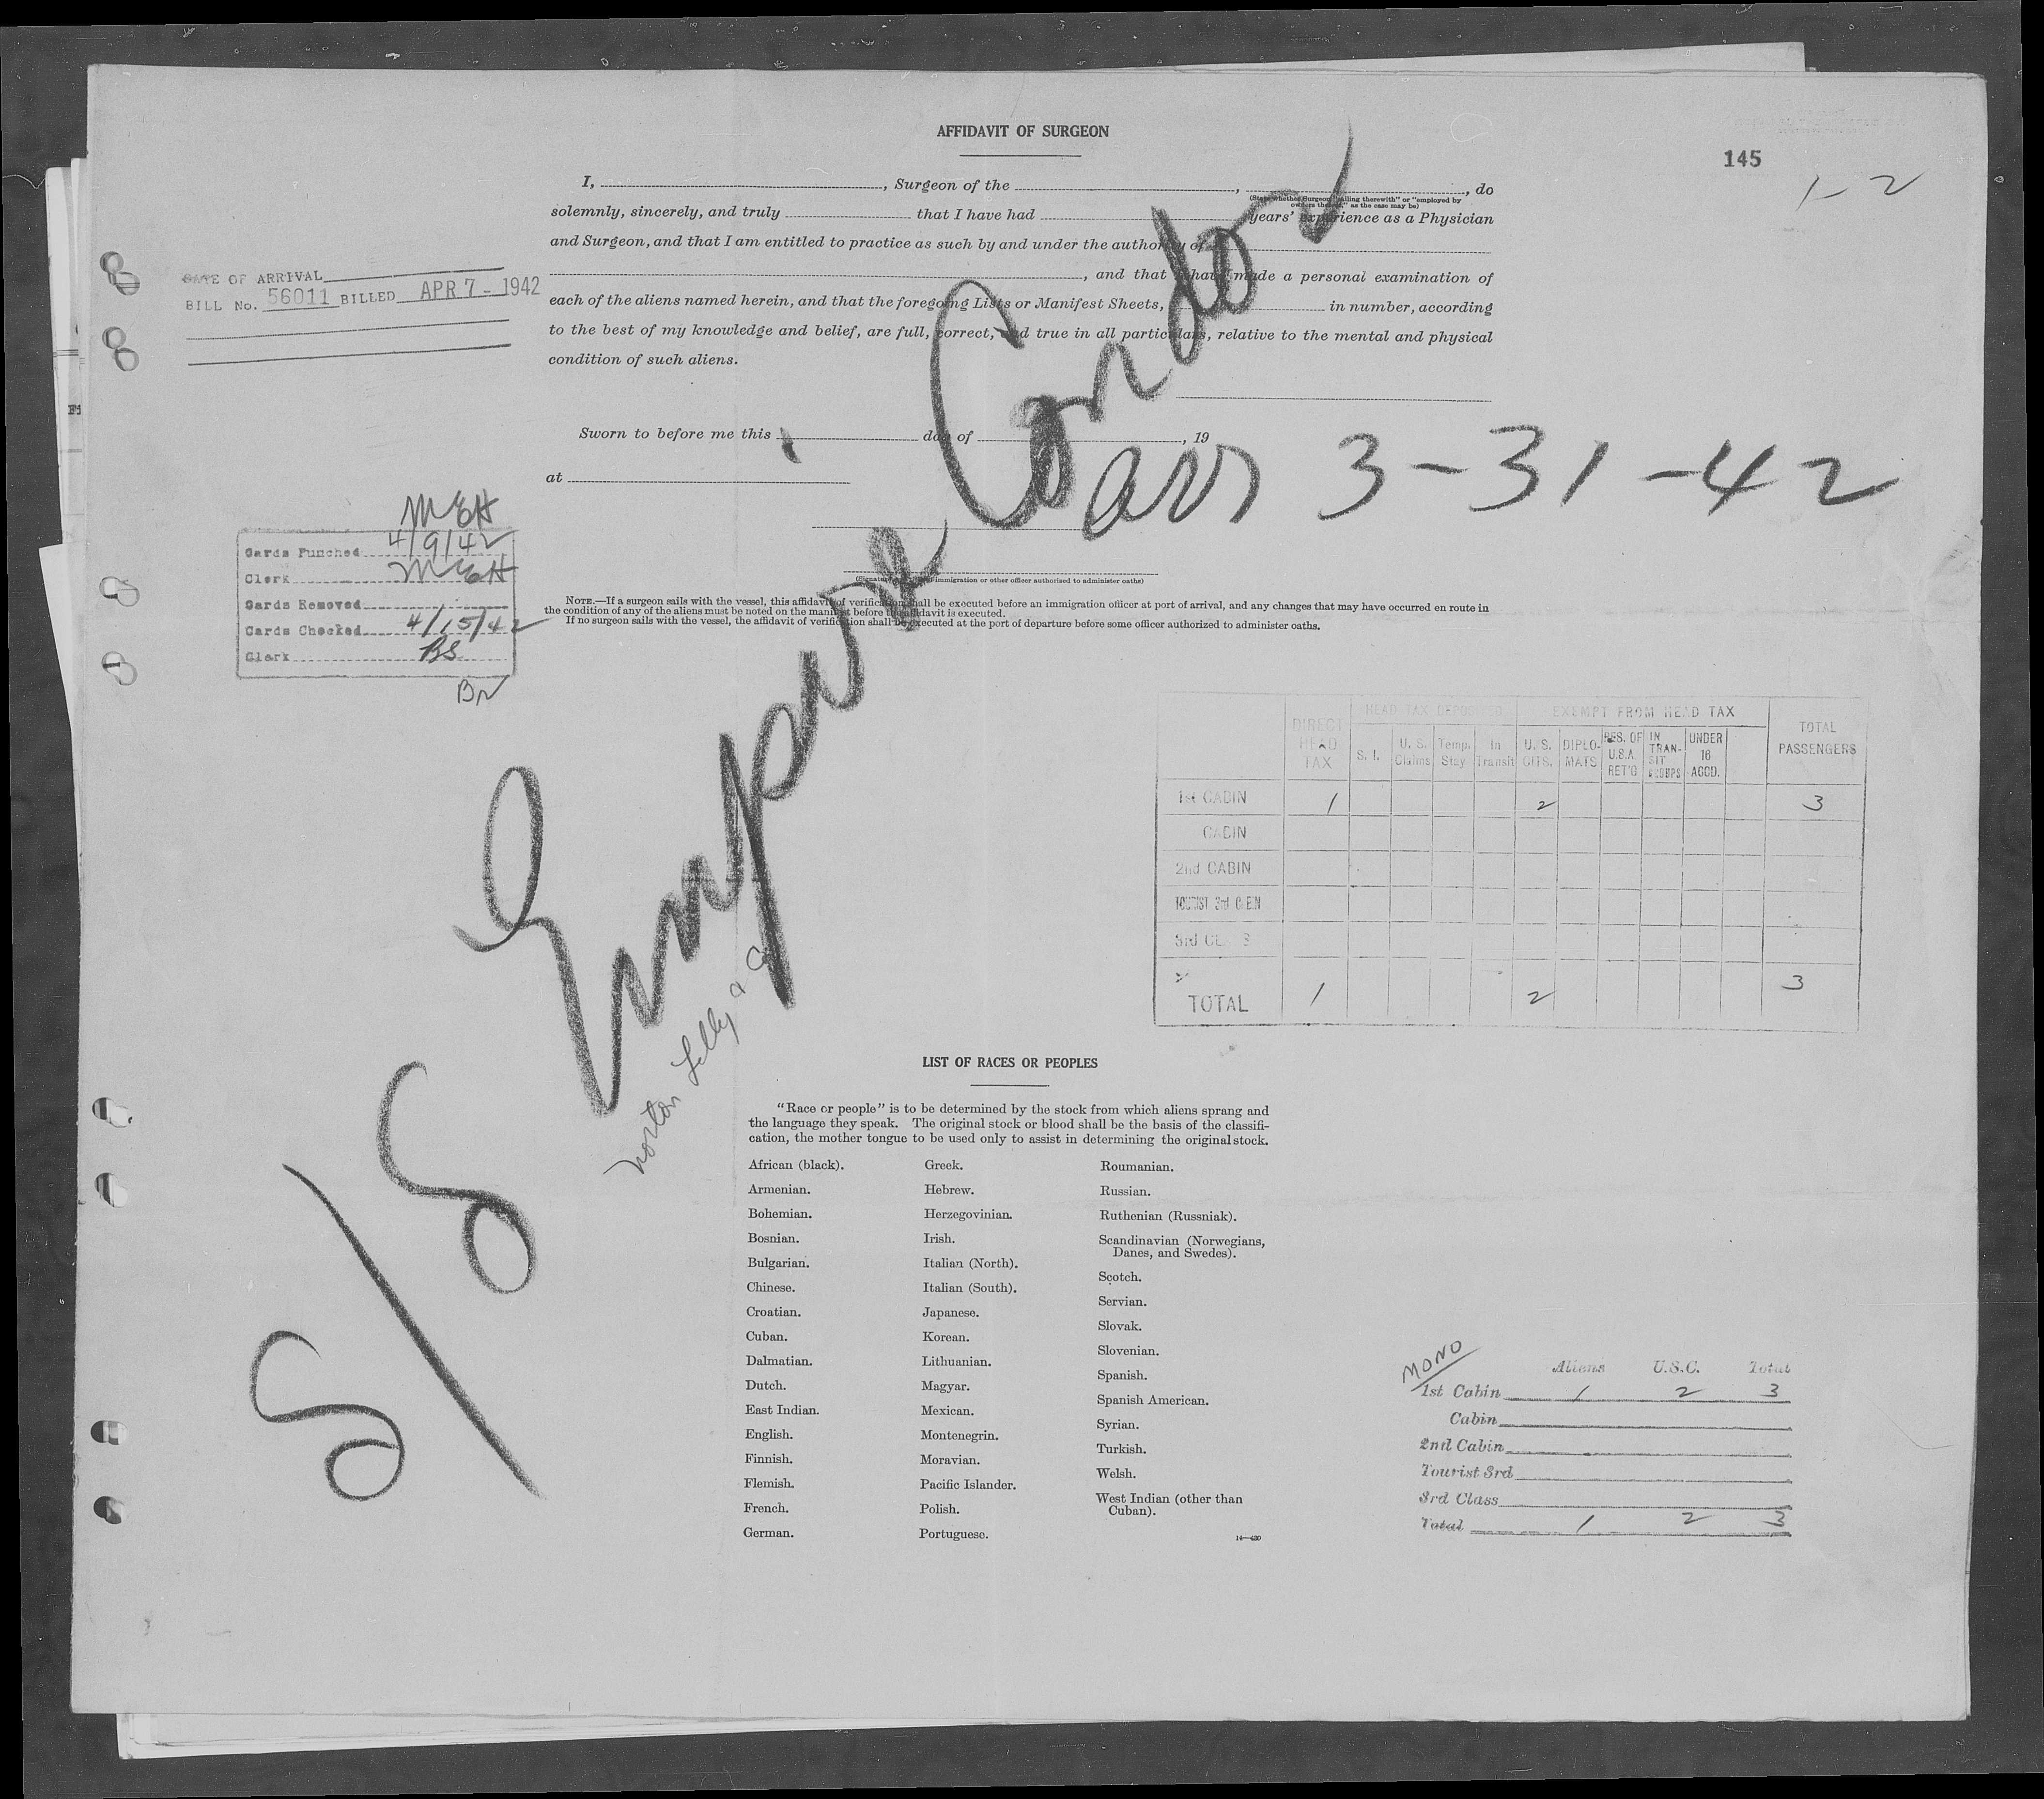 AFFIDAVIT OF SURGEON
145
1-2
I, , Surgeon of the , , do
(State whether Surgeon "sailing therewith" or "employed by
owners thereof," as the case may be)
solemnly, sincerely, and truly that I have had years' experience as a Physician
and Surgeon, and that I am entitled to practice as such by and under the authority of
, and that I have made a personal examination of
each of the aliens named herein, and that the foregoing Lists or Manifest Sheets, in number, according
to the best of my knowledge and belief, are full, correct, and true in all particulars, relative to the mental and physical
condition of such aliens.
DATE OF ARRIVAL
BILL No. 56011 BILLED APR 7 - 1942
Sworn to before me this day of , 19
at
arr 3-31-42
S/S Emperor Condor
Norton Lilly & Co
MEH
Cards Punched 4/9/42
Clerk MEH
Cards Removed
Cards Checked 4/15/42
Clerk BS
Br
(Signature immigration or other officer authorized to administer oaths)
NOTE.—If a surgeon sails with the vessel, this affidavit of verification shall be executed before an immigration officer at port of arrival, and any changes that may have occurred en route in
the condition of any of the aliens must be noted on the manifest before the affidavit is executed.
If no surgeon sails with the vessel, the affidavit of verification shall be executed at the port of departure before some officer authorized to administer oaths.
DIRECT HEAD TAX
HEAD TAX DEPOSITED
EXEMPT FROM HEAD TAX
TOTAL PASSENGERS
S. I. U. S. Claims Temp. Stay In Transit U. S. CITS. DIPLO-MATS RES. OF U.S.A. RET'G IN TRAN-SIT GROUPS UNDER 16 ACCD.
1st CABIN 1 2 3
CABIN
2nd CABIN
TOURIST 3rd CABIN
3rd CLASS
TOTAL 1 2 3
LIST OF RACES OR PEOPLES
"Race or people" is to be determined by the stock from which aliens sprang and
the language they speak. The original stock or blood shall be the basis of the classifi-
cation, the mother tongue to be used only to assist in determining the original stock.
African (black).
Armenian.
Bohemian.
Bosnian.
Bulgarian.
Chinese.
Croatian.
Cuban.
Dalmatian.
Dutch.
East Indian.
English.
Finnish.
Flemish.
French.
German.
Greek.
Hebrew.
Herzegovinian.
Irish.
Italian (North).
Italian (South).
Japanese.
Korean.
Lithuanian.
Magyar.
Mexican.
Montenegrin.
Moravian.
Pacific Islander.
Polish.
Portuguese.
Roumanian.
Russian.
Ruthenian (Russniak).
Scandinavian (Norwegians,
Danes, and Swedes).
Scotch.
Servian.
Slovak.
Slovenian.
Spanish.
Spanish American.
Syrian.
Turkish.
Welsh.
West Indian (other than
Cuban).
MONO
Aliens U.S.C. Total
1st Cabin 1 2 3
Cabin
2nd Cabin
Tourist 3rd
3rd Class
Total 1 2 3